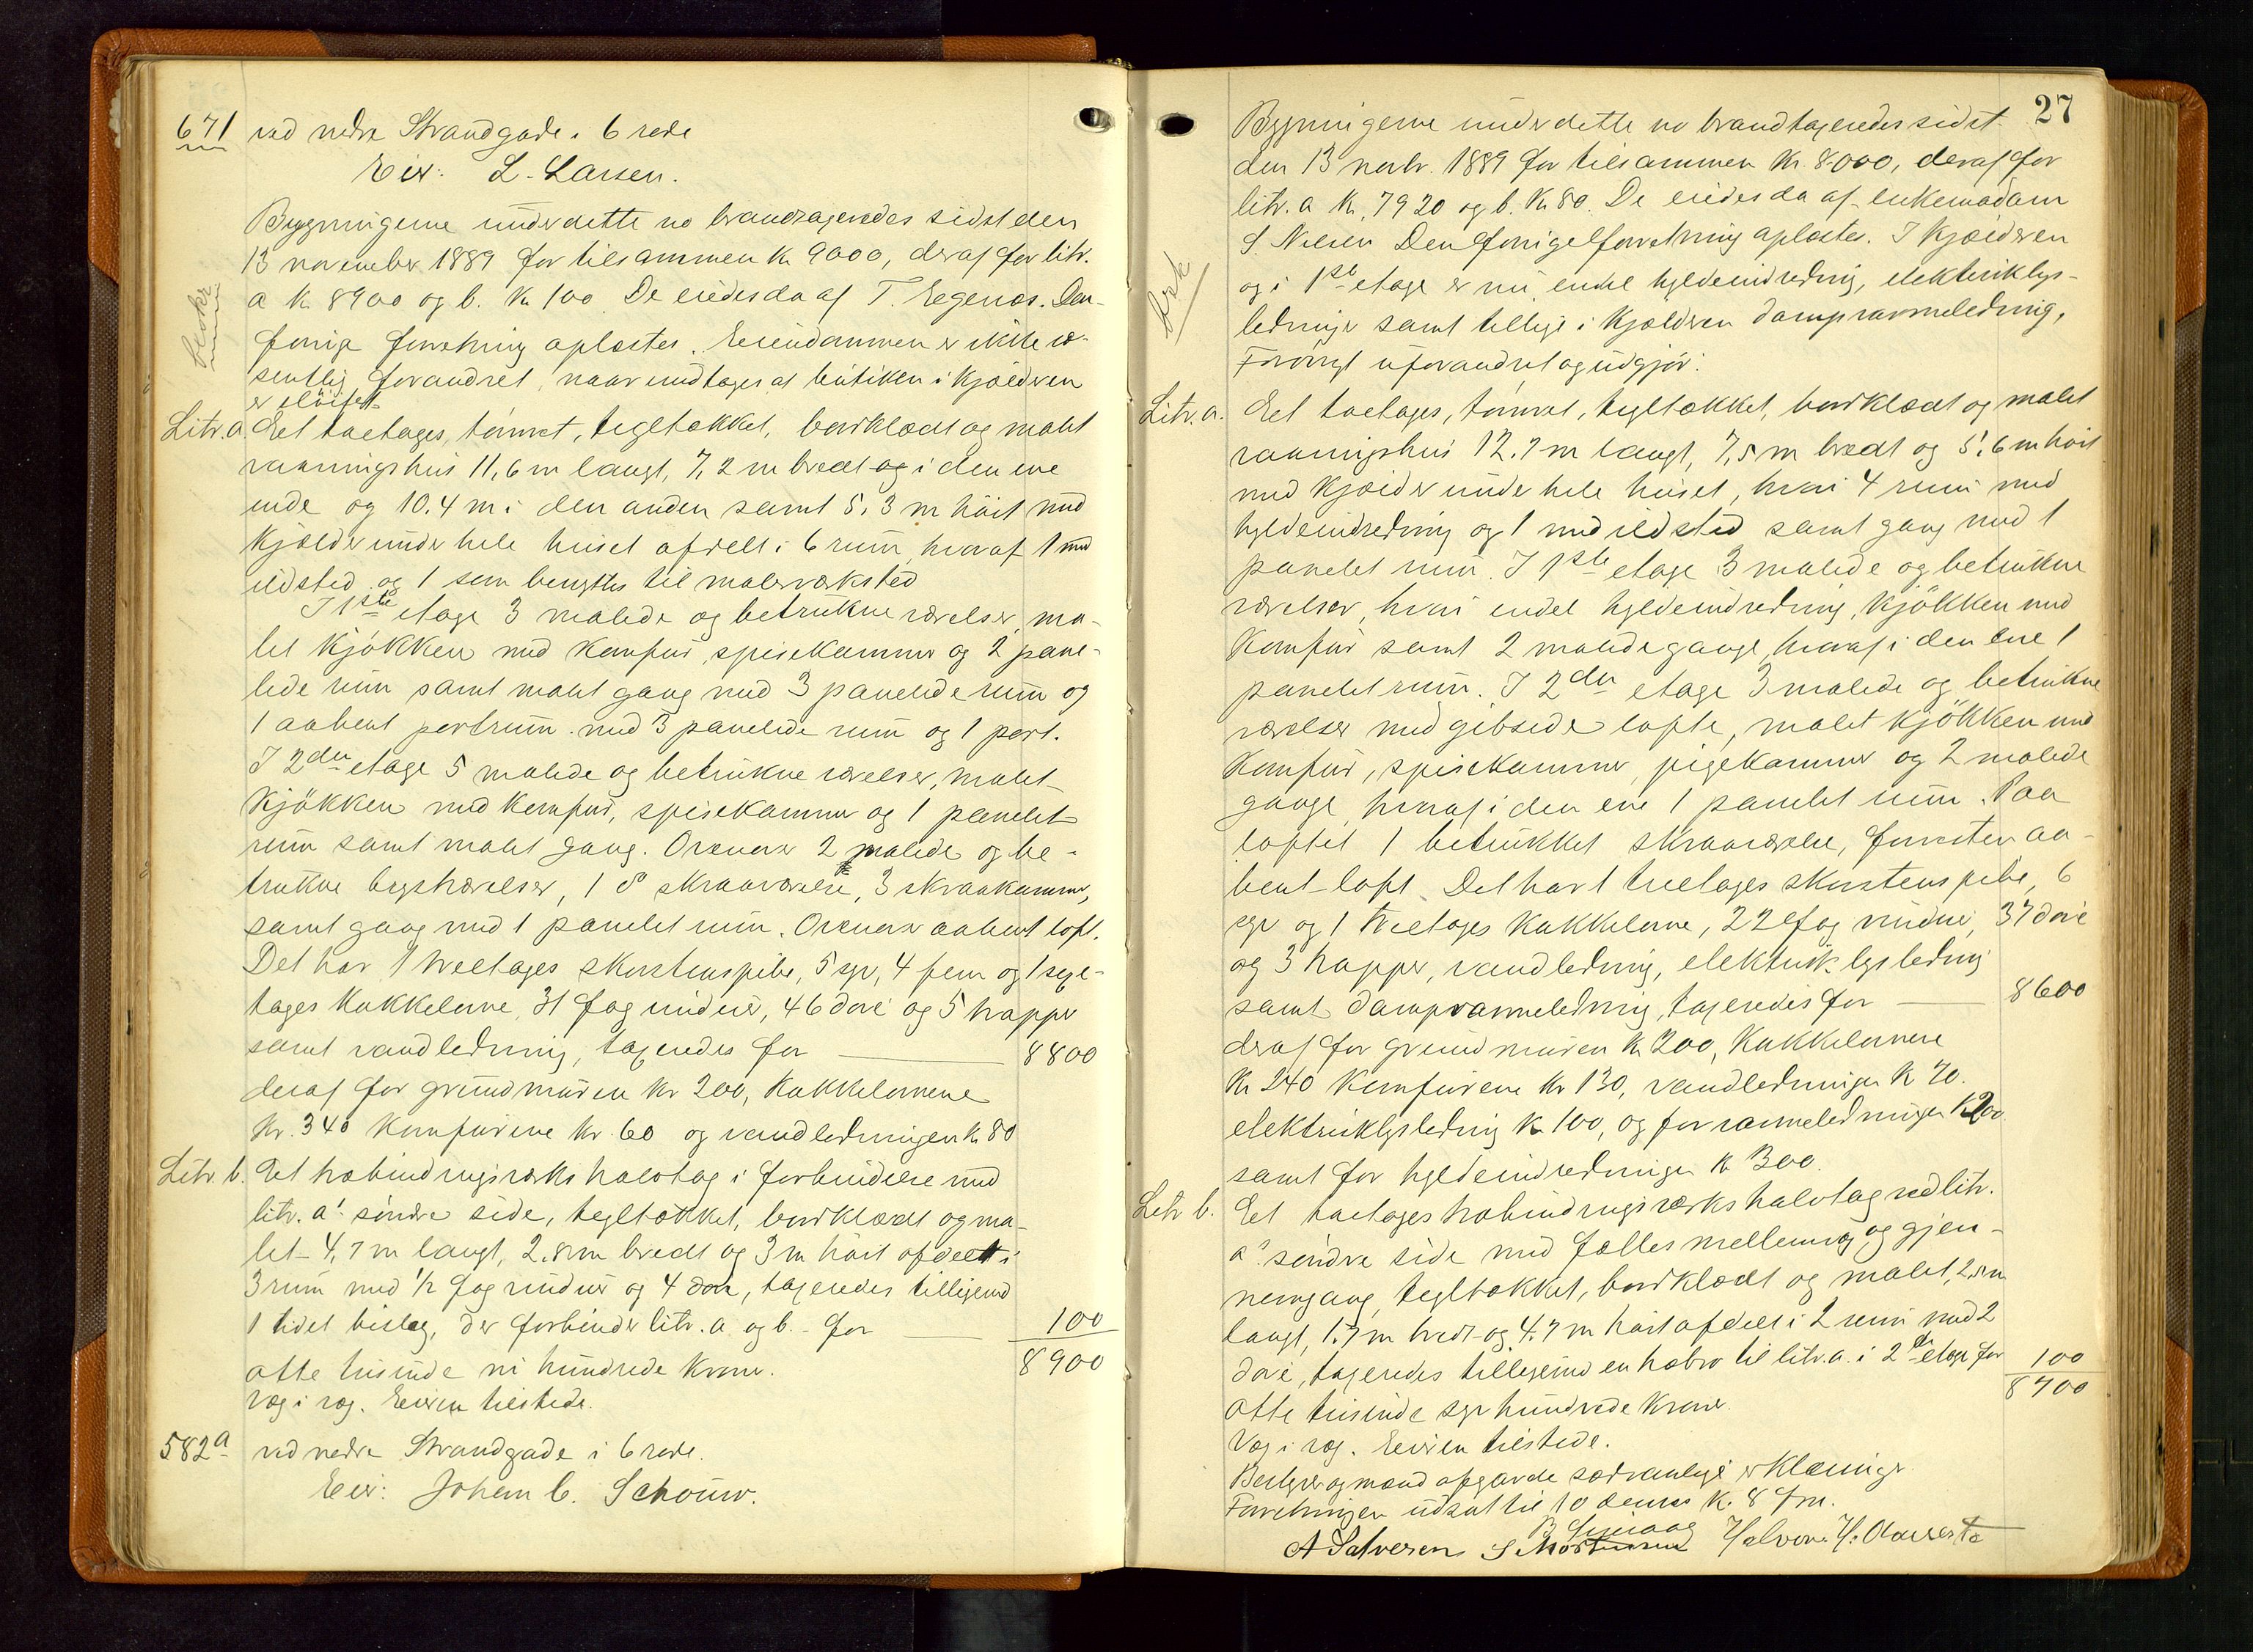 671 ved nedre Strandgade i 6 rode
Eier: L. Larsen.
Bygningerne under dette no brandtaxeredes sidst den
13 november 1889 for tilsammen kr 9000, deraf for litr.
a kr 8900 og b. kr 100. De eiedes da af T. Egenæs. Den
forrige forretning oplæstes. Eiendommen er ikke væ-
sentlig forandret, naar undtages at butiken i kjælderen
er sløifet.
Litr. a. Et toetages, tømret, tegltækket, bordklædt og malet
vaaningshus 11,6 m langt, 7,2 m bredt og i den ene
ende og 10.4 m i den anden samt 5,3 m høit med
kjælder under hele huset afdelt i 6 rum hvoraf 1 med
ildsted og 1 som benyttes til malerværksted
I 1ste etage 3 malede og betrukne værelser, ma-
let kjøkken med komfur, spisekammer og 2 pane-
lede rum samt malet gang med 3 panelede rum og
1 aabent portrum med 3 panelede rum og 1 port.
I 2den etage 5 malede og betrukne værelser, malet
kjøkken med komfur, spisekammer og 1 panelet
rum samt malet gang. Ovenover 2 malede og be-
trukne kvistværelser, 1 do skraaværelse, 3 skraakammer,
samt gang med 1 panelet rum. Ovenover aabent loft.
Det har 1 treetages skorstenspibe, 5 syv, 4 fem og 1 sex-
etages kakkelovne, 31 fag vinduer, 46 døre og 5 trapper
samt vandledning, taxeredes for 8800
deraf for grundmuren kr 200, kakkelovnene
kr. 340 komfurene kr. 60 og vandledningen kr 80
Litr. b. Et halvbindingsværks halvtag i forbindelse med
litr. a's søndre side, tegltækket, bordklædt og ma-
let 4,7 m langt, 2.8 m bredt og 3 m høit afdelt i
3 rum med 1/2 fag vinduer og 4 døre, taxeredes tilligemed
1 lidet bislag, der forbinder litr. a og b. for 100
8900
otte tusinde ni hundrede kroner.
Væg i væg. Eieren tilstede.
582a ved nedre Strandgade i 6 rode.
Eier: Johan C. Schouw.
27
Bygningerne under dette no brandtaxeredes sidst
den 13 novbr. 1889 for tilsammen kr. 8000, deraf for
litr. a kr. 7920 og b. kr 80. De eiedes da af enkemadam
S. Nielsen Den forrige forretning oplæstes. I kjælderen
og i 1ste etage er nu endel hyldeindredning, elektrisk lys-
ledninger samt tillige i kjælderen dampvarmeledning.
Forøvrigt uforandret og udgjør:
Litr. a. Et toetages, tømret, tegltækket, bordklædt og malet
vaaningshus 12.7 m langt, 7,5 m bredt og 5,6 m høit
med kjælder under hele huset, hvori 4 rum med
hyldeindredning og 1 med ildsted samt gang med 1
panelet rum. I 1ste etage 3 malede og betrukne
værelser, hvori endel hyldeindredning, kjøkken med
komfur samt 2 malede gange, hvoraf i den ene 1
panelet rum. I 2den etage 3 malede og betrukne
værelser med gibsede lofte, malet kjøkken med
komfur, spisekammer, pigekammer og 2 malede
gange, hvoraf i den ene 1 panelet rum. Paa
loftet 1 betrukket skraaværelse, forresten aa-
bent loft. Det har 1 treetages skorstenspibe, 6
syv og 1 treetages kakkelovne, 22 fag vinduer, 37 døre
og 3 trapper, vandledning, elektrisk lysledning
samt dampvarmeledning, taxeredes for 8600
deraf for grundmuren kr 200, kakkelovnene
kr 240 komfurene kr 130, vandledningen kr 70.
elektrisklysledning kr 100, og for varmeledningen kr 200
samt for hyldeindredningen kr 300.
Litr b. Et toetages halvbindingsværks halvtag ved litr.
a's søndre side med fælles mellemvæg og gjen-
nemgang, tegltækket, bordklædt og malet, 2,8 m
langt, 1.7 m bredt og 4.7 m høit afdelt i 2 rum med 2
døre, taxeredes tilligemed en træbro til litr. a. i 2den etage for 100
8700
otte tusinde syv hundrede kroner.
Væg i væg. Eieren tilstede.
Bestyrer og mænd afgav de sædvanlige erklæringer.
Forretningen udsat til 10 dennes kl. 8 fm.
A Salvesen S Mortensen Halvor H.